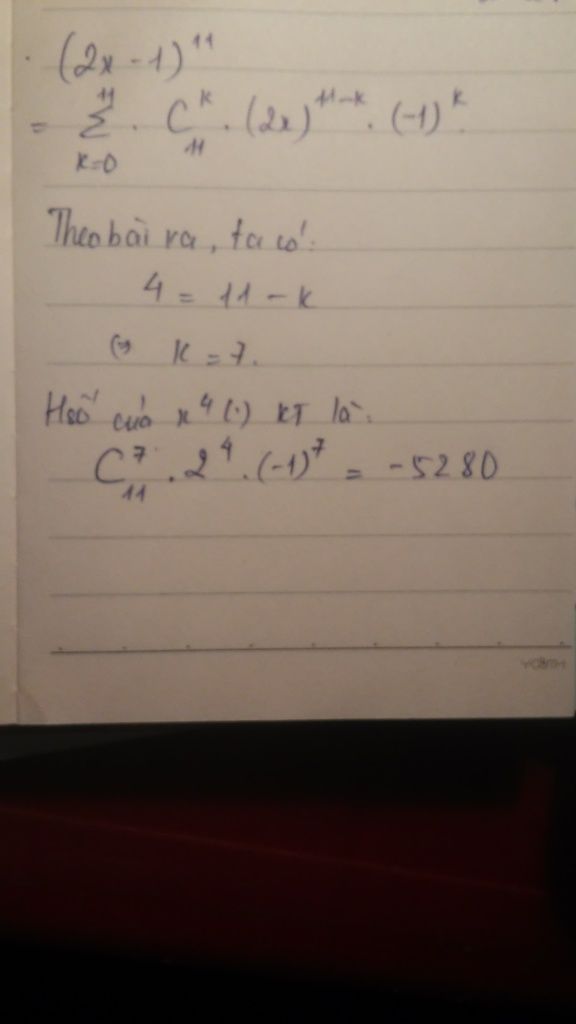 (2x - 1)^11
= Σ_{k=0}^{11} . C_{11}^{k} . (2x)^{11-k} . (-1)^k.
Theo bài ra, ta có:
4 = 11 - k
(=> k = 7.
Hsố của x^4 (.) KT là:
C_{11}^{7} . 2^4 . (-1)^7 = -5280